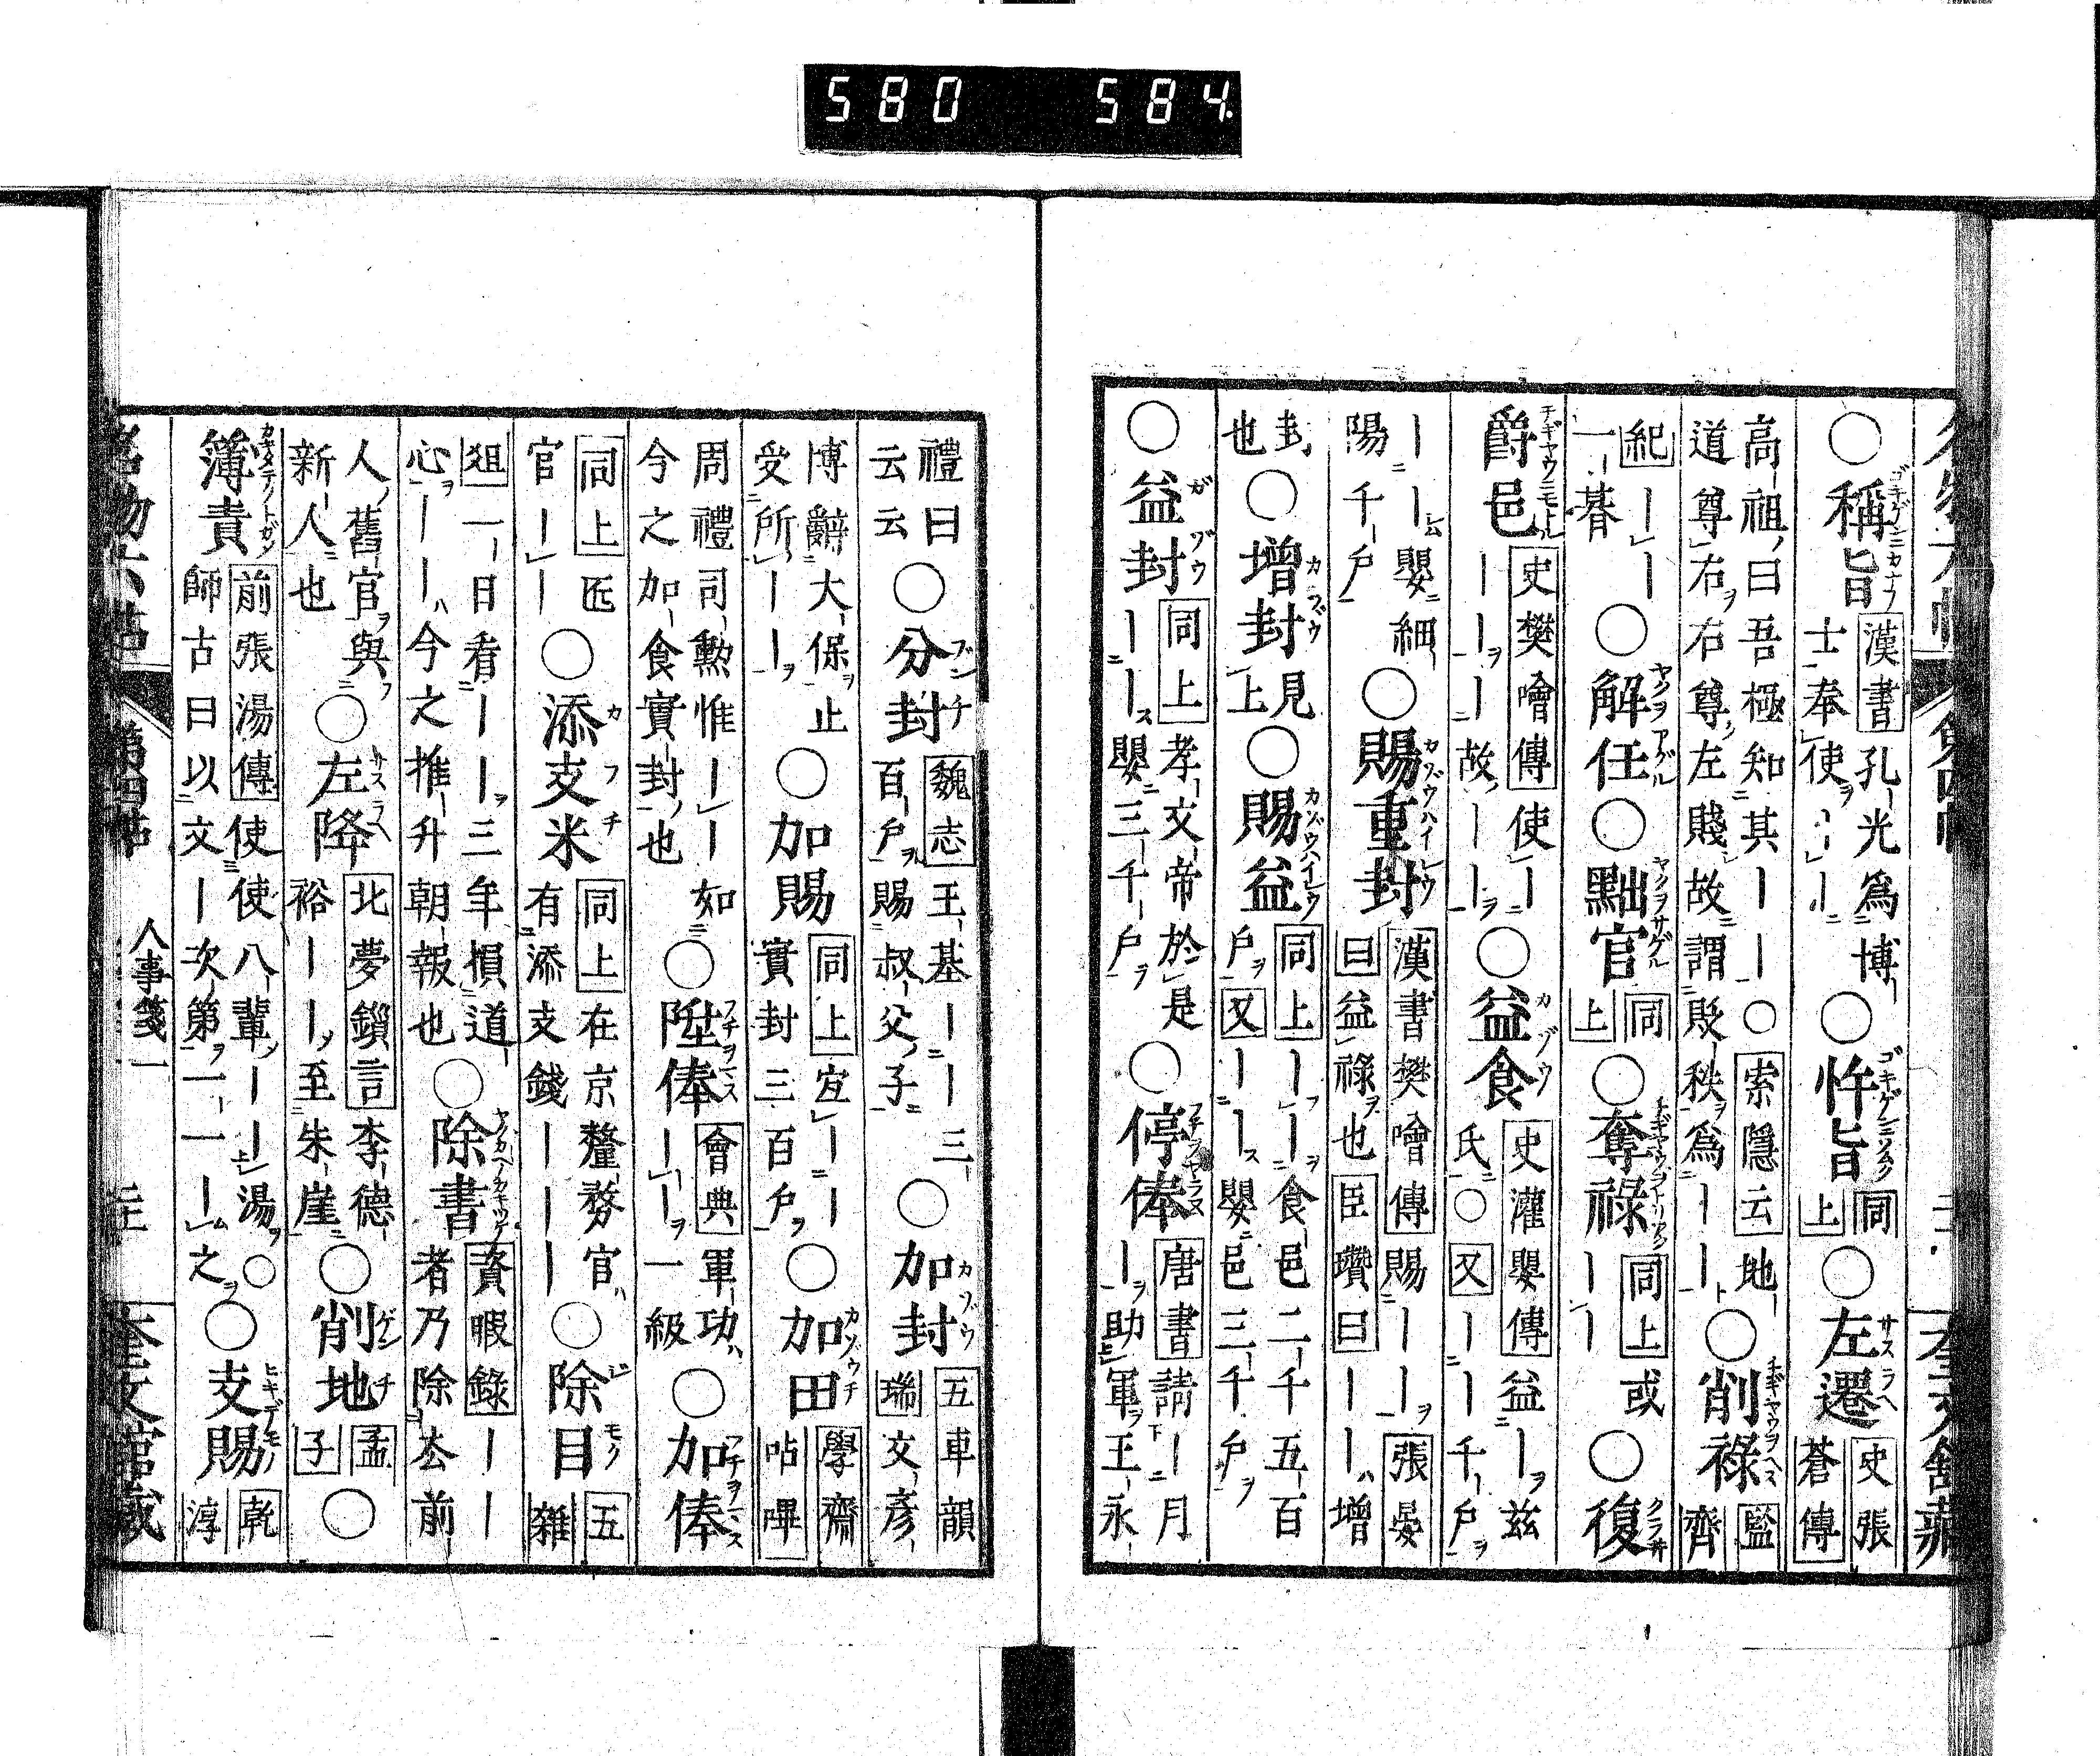 580 584
○稱旨 漢書 孔光爲博士奉使｜｜ ○忤旨 同上 ○左遷 史張蒼傳
高祖曰吾極知其｜｜○索隱云地道尊右右尊左賤故謂貶秩爲｜｜ ○削祿 監齊
紀｜｜一朞 ○解任 ○黜官 同上 ○奪祿 同上 或｜｜ ○復
爵邑 史樊噲傳 使｜｜｜｜故｜｜ ○益食 史灌嬰傳 益｜茲氏○又｜｜千戶
｜｜嬰細陽千戶 ○賜重封 漢書樊噲傳 賜｜｜｜張晏曰益祿也臣瓚曰｜｜增
封也 ○增封 見上 ○賜益 同上 ｜｜食邑二千五百戶又｜｜嬰邑三千戶
○益封 同上 孝文帝於是｜｜嬰三千戶 ○停俸 唐書 請｜月｜助軍王永
禮曰云云 ○分封 魏志 王基｜｜三百戶賜叔父子 ○加封 五車韻瑞 文彥
博辭大保止受所｜｜ ○加賜 同上 宜｜｜實封三百戶 ○加田 學齋呫嗶
周禮司勲惟｜｜如今之加食實封也 ○陞俸 會典 軍功｜｜一級 ○加俸
同上 匠官｜｜ ○添支米 同上 在京釐務官有添支錢｜｜｜ ○除目 五雜
俎 一日看｜｜三年損道心｜｜今之推升朝報也 ○除書 資暇錄 ｜｜者乃除去前
人舊官與新人也 ○左降 北夢鎖言 李德裕｜｜至朱崖 ○削地 孟子 ○
簿責 前張湯傳 使使八輩｜｜湯○師古曰以文｜次第一一｜之 ○支賜 乾淳
人事箋一